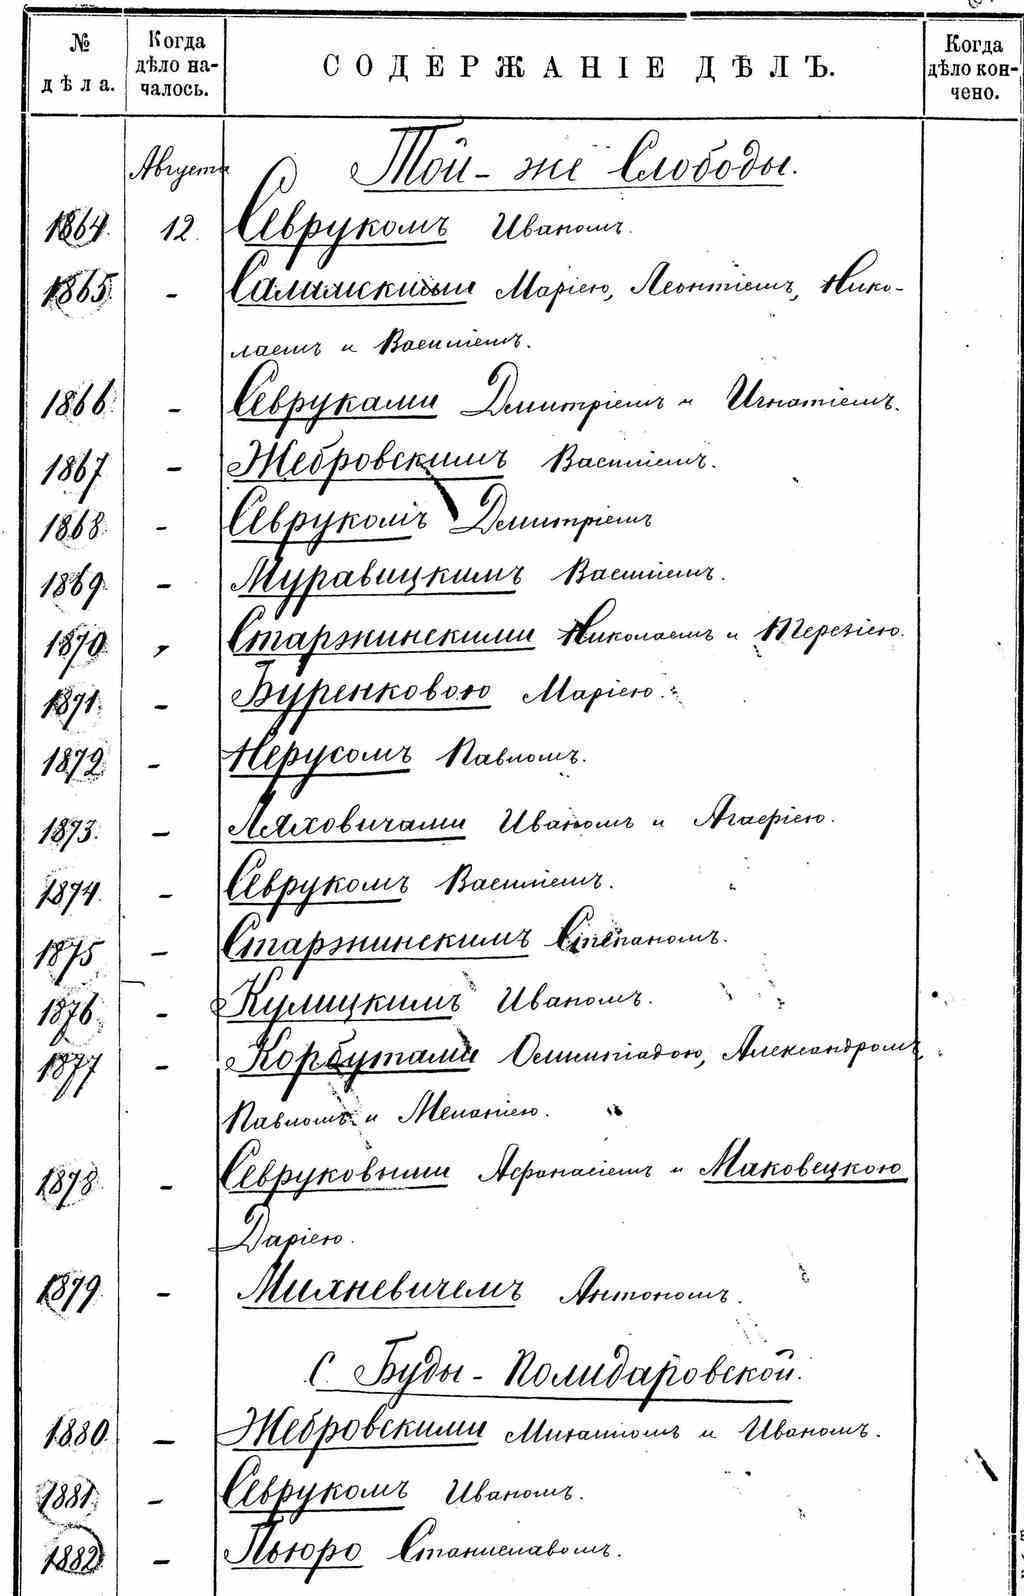 № дѣла.
Когда дѣло на-
чалось.
СОДЕРЖАНІЕ ДѢЛЪ.
Когда дѣло кон-
чено.
Августа
Той-же Слободы.
1864. 12. Севрукомъ Иваномъ.
1865 - Маріею, Леонтіемъ, Нико-
лаемъ и Василіемъ.
1866 - Севруками Дмитріемъ и Игнатіемъ.
1867 - Жебровскимъ Василіемъ.
1868 - Севрукомъ Дмитріемъ
1869 - Муравицкимъ Василіемъ.
1870 - Старжинскими Николаемъ и Терезіею.
1871 - Буренковою Маріею.
1872 - Нерусомъ Павломъ.
1873. - Ляховичами Иваномъ и Агафіею.
1874 - Севрукомъ Василіемъ.
1875 - Старжинскимъ Степаномъ.
1876 - Кулицкимъ Иваномъ.
1877 - Корбутами Олимпіадою, Александромъ,
Павломъ и Меланіею.
1878 - Севруковыми Афанасіемъ и Маковецкою
Даріею.
1879 - Михневичемъ Антономъ.
С. Буды-Полидаровской.
1880 - Жебровскими Михаиломъ и Иваномъ.
1881 - Севрукомъ Иваномъ.
1882 - Пьюро Станиславомъ.